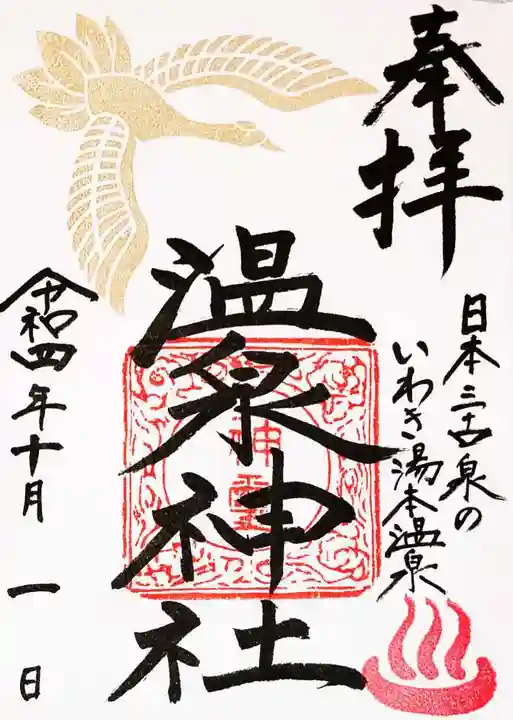 奉拝
日本三古泉の
いわき湯本温泉
温泉神社
神霊
令和四年十月一日